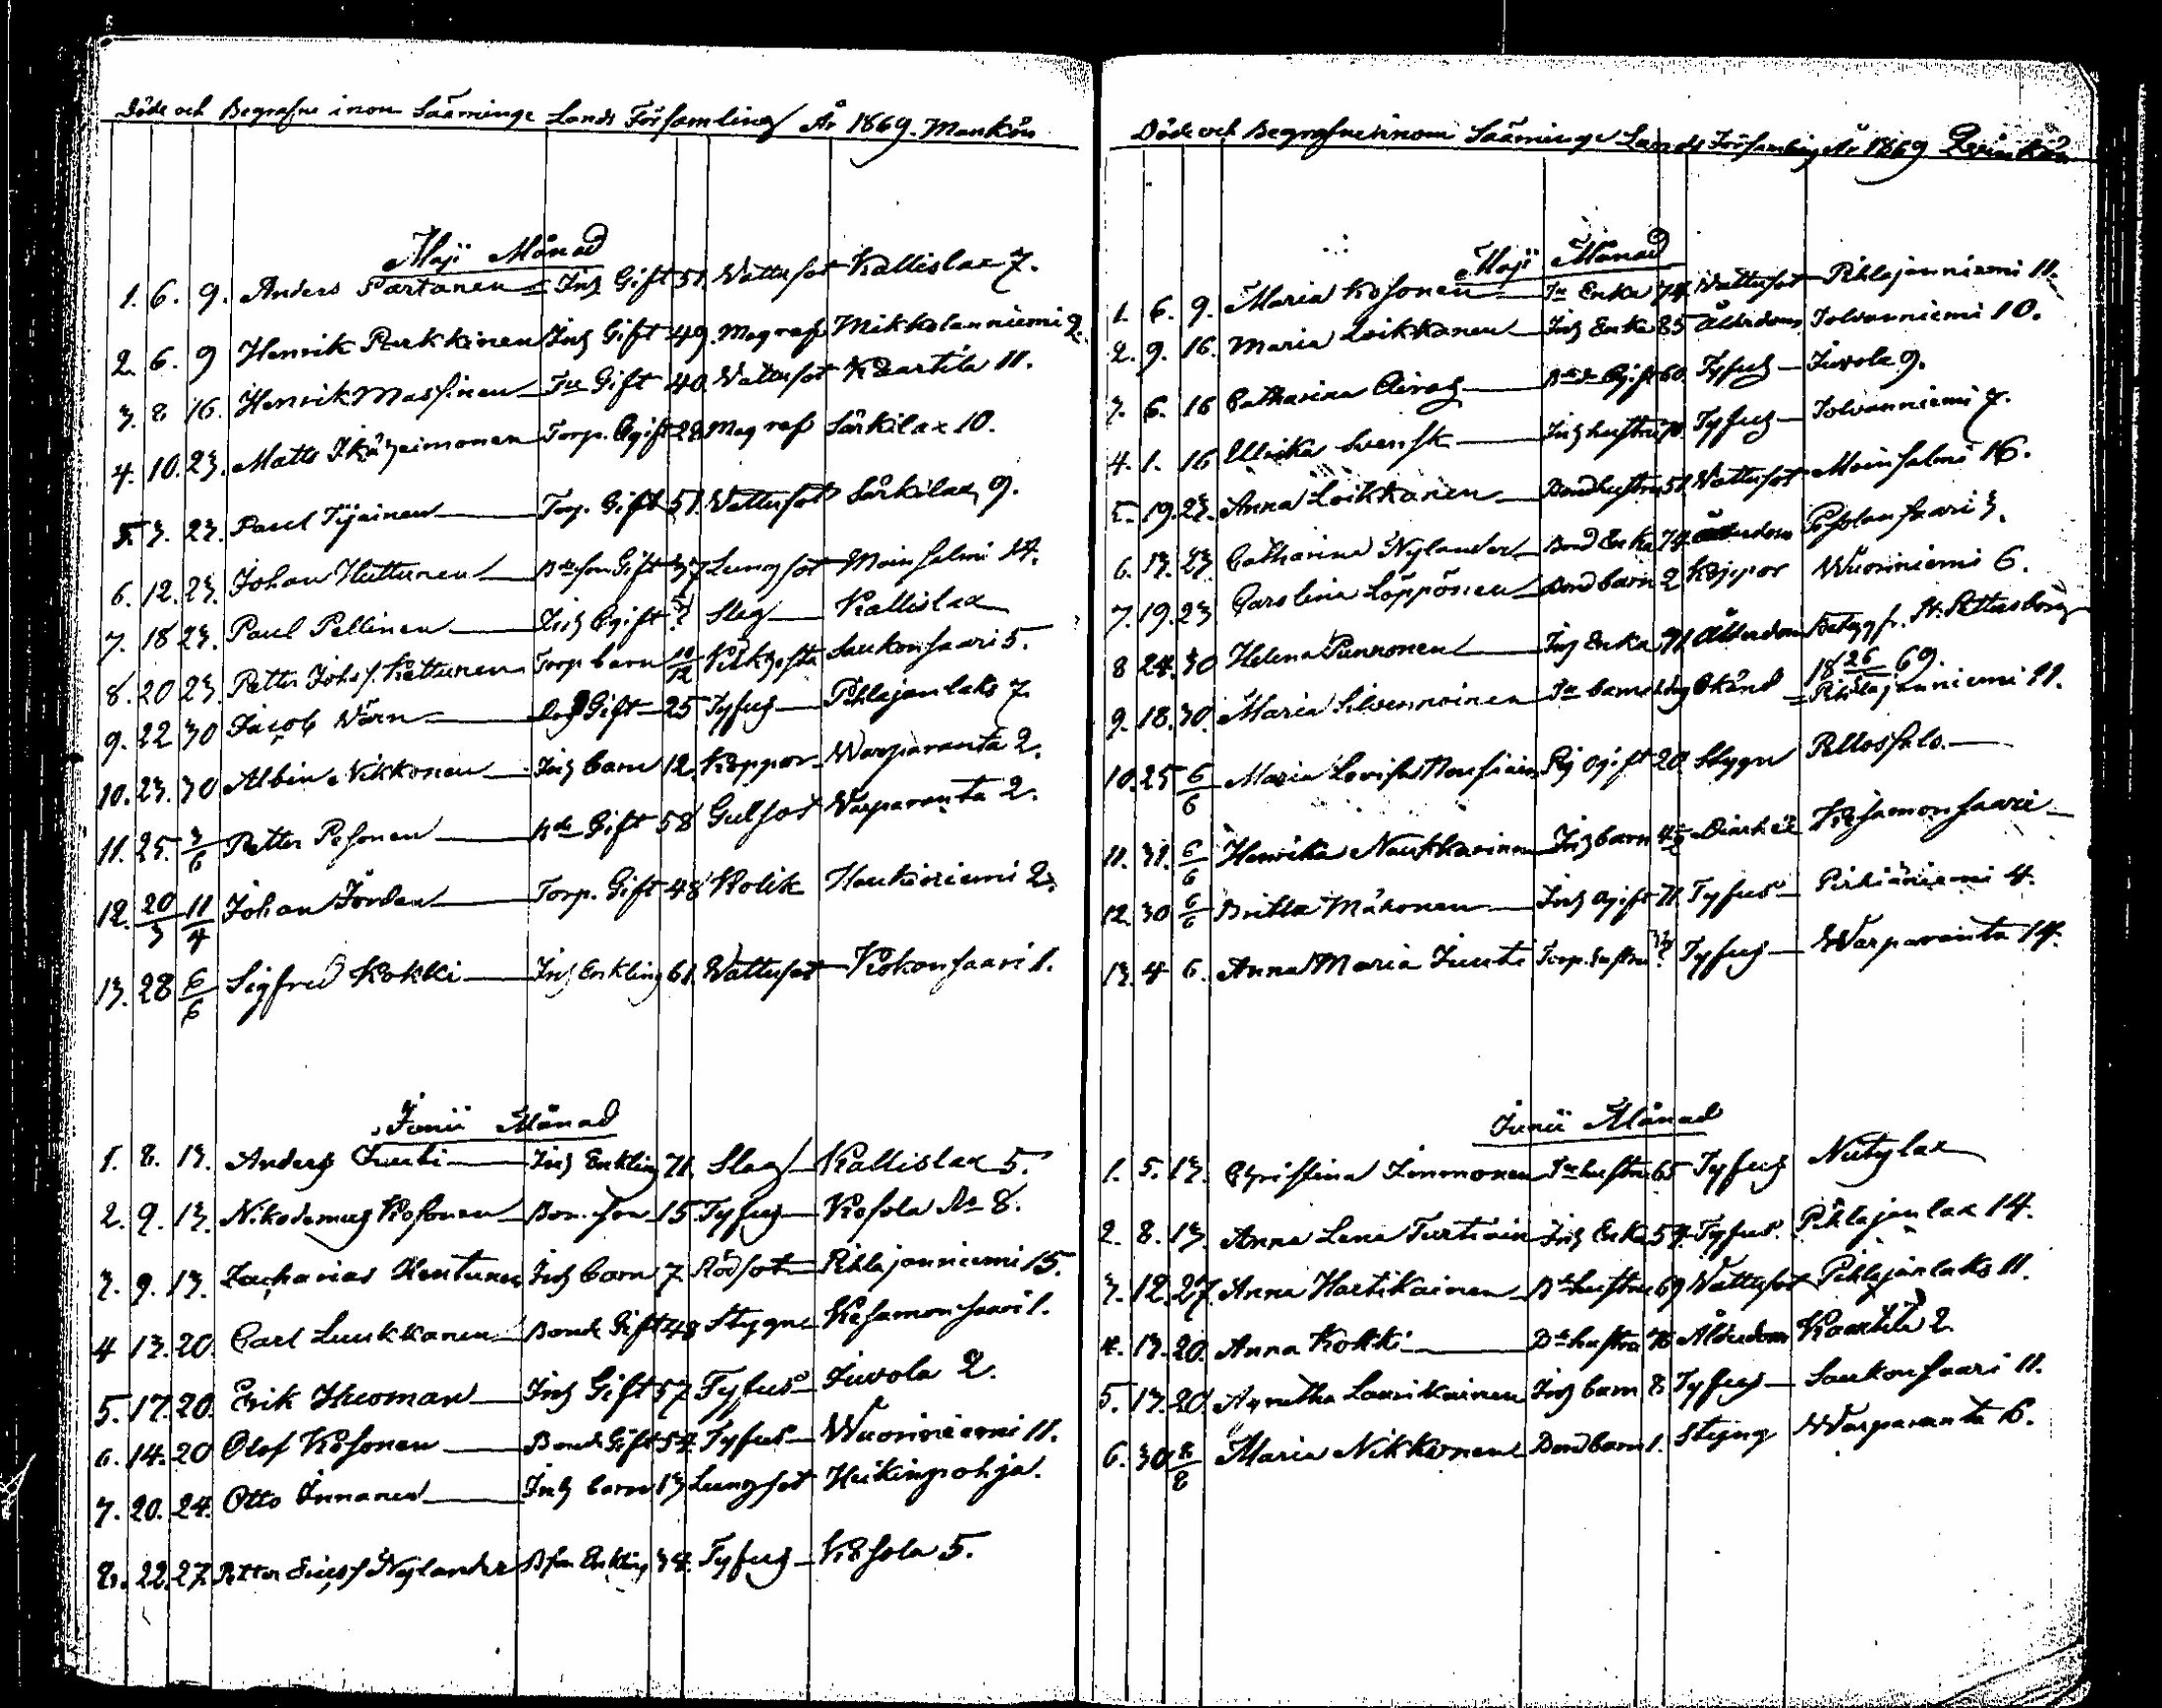 Döde och Begrafne inom Sääminge Lands Församling År 1869. Mankön
Maji Månad
1. 6. 9. Anders Partanen Inh Gift 51. Wattusot Kallislax 7.
2. 6. 9 Henrik Purkkinen Inh Gift 49. Mag ref Mikkolanniemi 2.
3. 8 16. Henrik Massinen Gift 40. Wattusot Kaartila 11.
4. 10. 23. Matts Torp. Ogift 28 Mag ref Särkilax 10.
5. 3. 23. Paul Tijainen Torp. Gift 51. Wattusot Särkilax 9.
6. 12. 23. Johan Huttunen Gift 37 Lungsot Moinsalmi 14.
7. 18 23. Paul Pellinen Inh Ogift Slag Kallislax
8. 20 23. Petter Johs. Kettunen Torp barn 10/12 Saukonsaari 5.
9. 22 30 Jacob Wärn Gift 25 Tyfus Pihlajanlaks 7.
10. 23. 30 Albin Nikkonen Inh barn 12. Koppor Warparanta 2.
11. 25. 3/6 Petter Pesonen Gift 58 Gulsot Warparanta 2.
12. 20/3 11/4 Johan Jordan Torp. Gift 48 Kolik Haukiniemi 2.
13. 28 6/6 Sigfred Kokki Inh Enkling 61. Wattusot Kokonsaari 1.
Junii Månad
1. 8. 13. Anders Juuti Inh Enkling 71. Slag Kallislax 5.
2. 9. 13. Nikodemus Kosonen Bon. son 15. Tyfus Kosola No 8.
3. 9. 13. Zacharias Kontunen Inh barn 7. Rödsot Pihlajanniemi 15.
4 13. 20. Carl Luukkanen Bonde Gift 48 Stygne Kesamonsaari 1.
5. 17. 20. Erik Huoman Inh Gift 57 Tyfus Juvola 2.
6. 14. 20 Olof Kosonen Bonde Gift 54. Tyfus Wuoriniemi 11.
7. 20. 24. Otto Innanen Inh barn 13 Lungsot Heikinpohja.
8. 22. 27. Petter Ericss. Nylander Bson Enkling 34. Tyfus Kosola 5.
Döde och Begrafne inom Sääminge Lands Församling År 1869 Qvinkön
Maji Månad
1. 6. 9. Maria Kosonen Enka 74. Wattusot Pihlajanniemi 11.
2. 9. 16. Maria Loikkanen Inh Enka 85 Ålderdom Tolvanniemi 10.
3. 6. 16 Catharina Airas Ogift 60. Tyfus Juvola 9.
4. 1. 16 Ulrika Svensk Inh hustru 70. Tyfus Tolvanniemi 7.
5. 19. 23. Anna Loikkanen Bond hustru 51. Wattusot Moinsalmi 16.
6. 13. 23. Catharina Nylander Bond Enka 74. Ålderdom Pesolansaari 3.
7. 19. 23 Carolina Löppönen Bond barn 2 Koppor Wuoriniemi 6.
8 24. 30 Helena Punnonen Inh Enka 71. Ålderdom Betyg fr. St. Petersborg
18 26/5 69.
9. 18. 30. Maria Silvennoinen barn Okänd Pihlajanniemi 11.
10. 25 6/6 Maria Lovisa Pig ogift 20. Stygn Pellossalo.
11. 31. 6/6 Henrika Naukkarinen Inh barn Kesamonsaari
12. 30 6/6 Britta Mähonen Inh ogift 71. Tyfus Pirhiäniemi 4.
13. 4 6. Anna Maria Juuti Torp. hustru Tyfus Warparanta 14.
Junii Månad
1. 5. 13. Christina Immonen hustru 65 Tyfus Niitylax
2. 8. 13. Anna Lena Turtiain Inh Enka 54. Tyfus. Pihlajanlax 14.
3. 12. 27. Anna Hartikainen hustru 69 Wattusot Pihlajanlaks 11.
4. 13. 20. Anna Kokki hustru 76 Ålderdom Kaartila 2.
5. 13. 20. Agnetha Laurikainen Inh barn 8. Tyfus Saukonsaari 11.
6. 30 8/8 Maria Nikkonen Bond barn 1. Styng Warparanta 6.